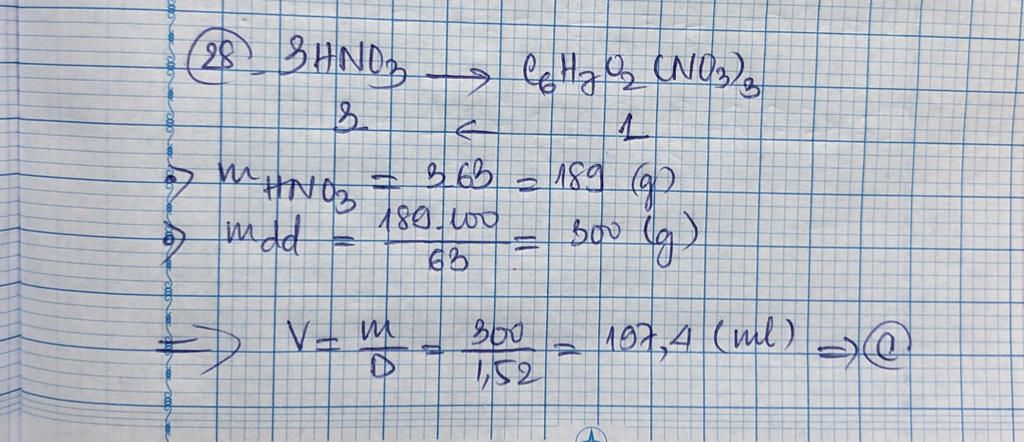 28 - 3HNO3 → C6H7O2(NO3)3
3 ← 1
=> mHNO3 = 3.63 = 189 (g)
=> mdd = 189.100/63 = 300 (g)
=> V = m/D = 300/1,52 = 197,4 (ml) => @